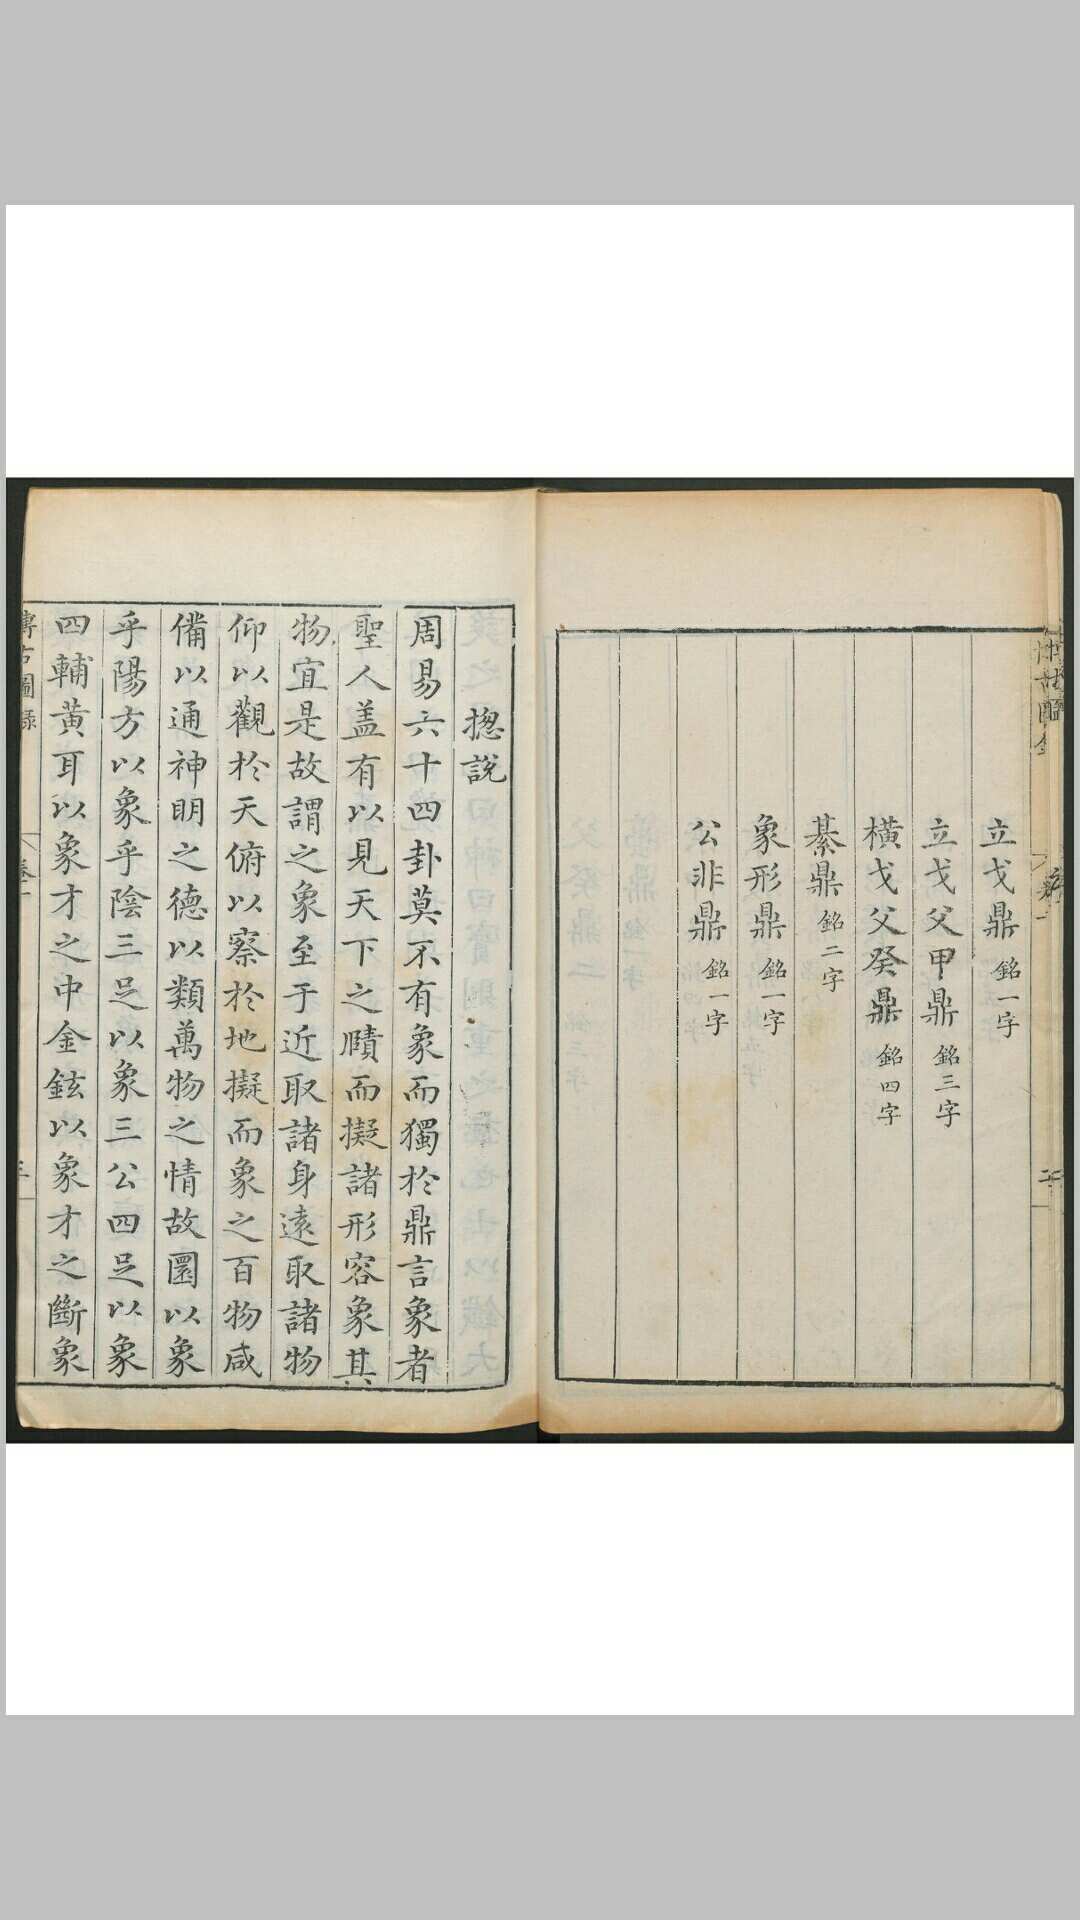 立戈鼎 銘一字
立戈父甲鼎 銘三字
橫戈父癸鼎 銘四字
綦鼎 銘二字
象形鼎 銘一字
公非鼎 銘一字
揔說
周易六十四卦莫不有象而獨於鼎言象者
聖人盖有以見天下之賾而擬諸形容象其
物宜是故謂之象至于近取諸身遠取諸物
仰以觀於天俯以察於地擬而象之百物咸
備以通神明之德以類萬物之情故圜以象
乎陽方以象乎陰三足以象三公四足以象
四輔黃耳以象才之中金鉉以象才之斷象